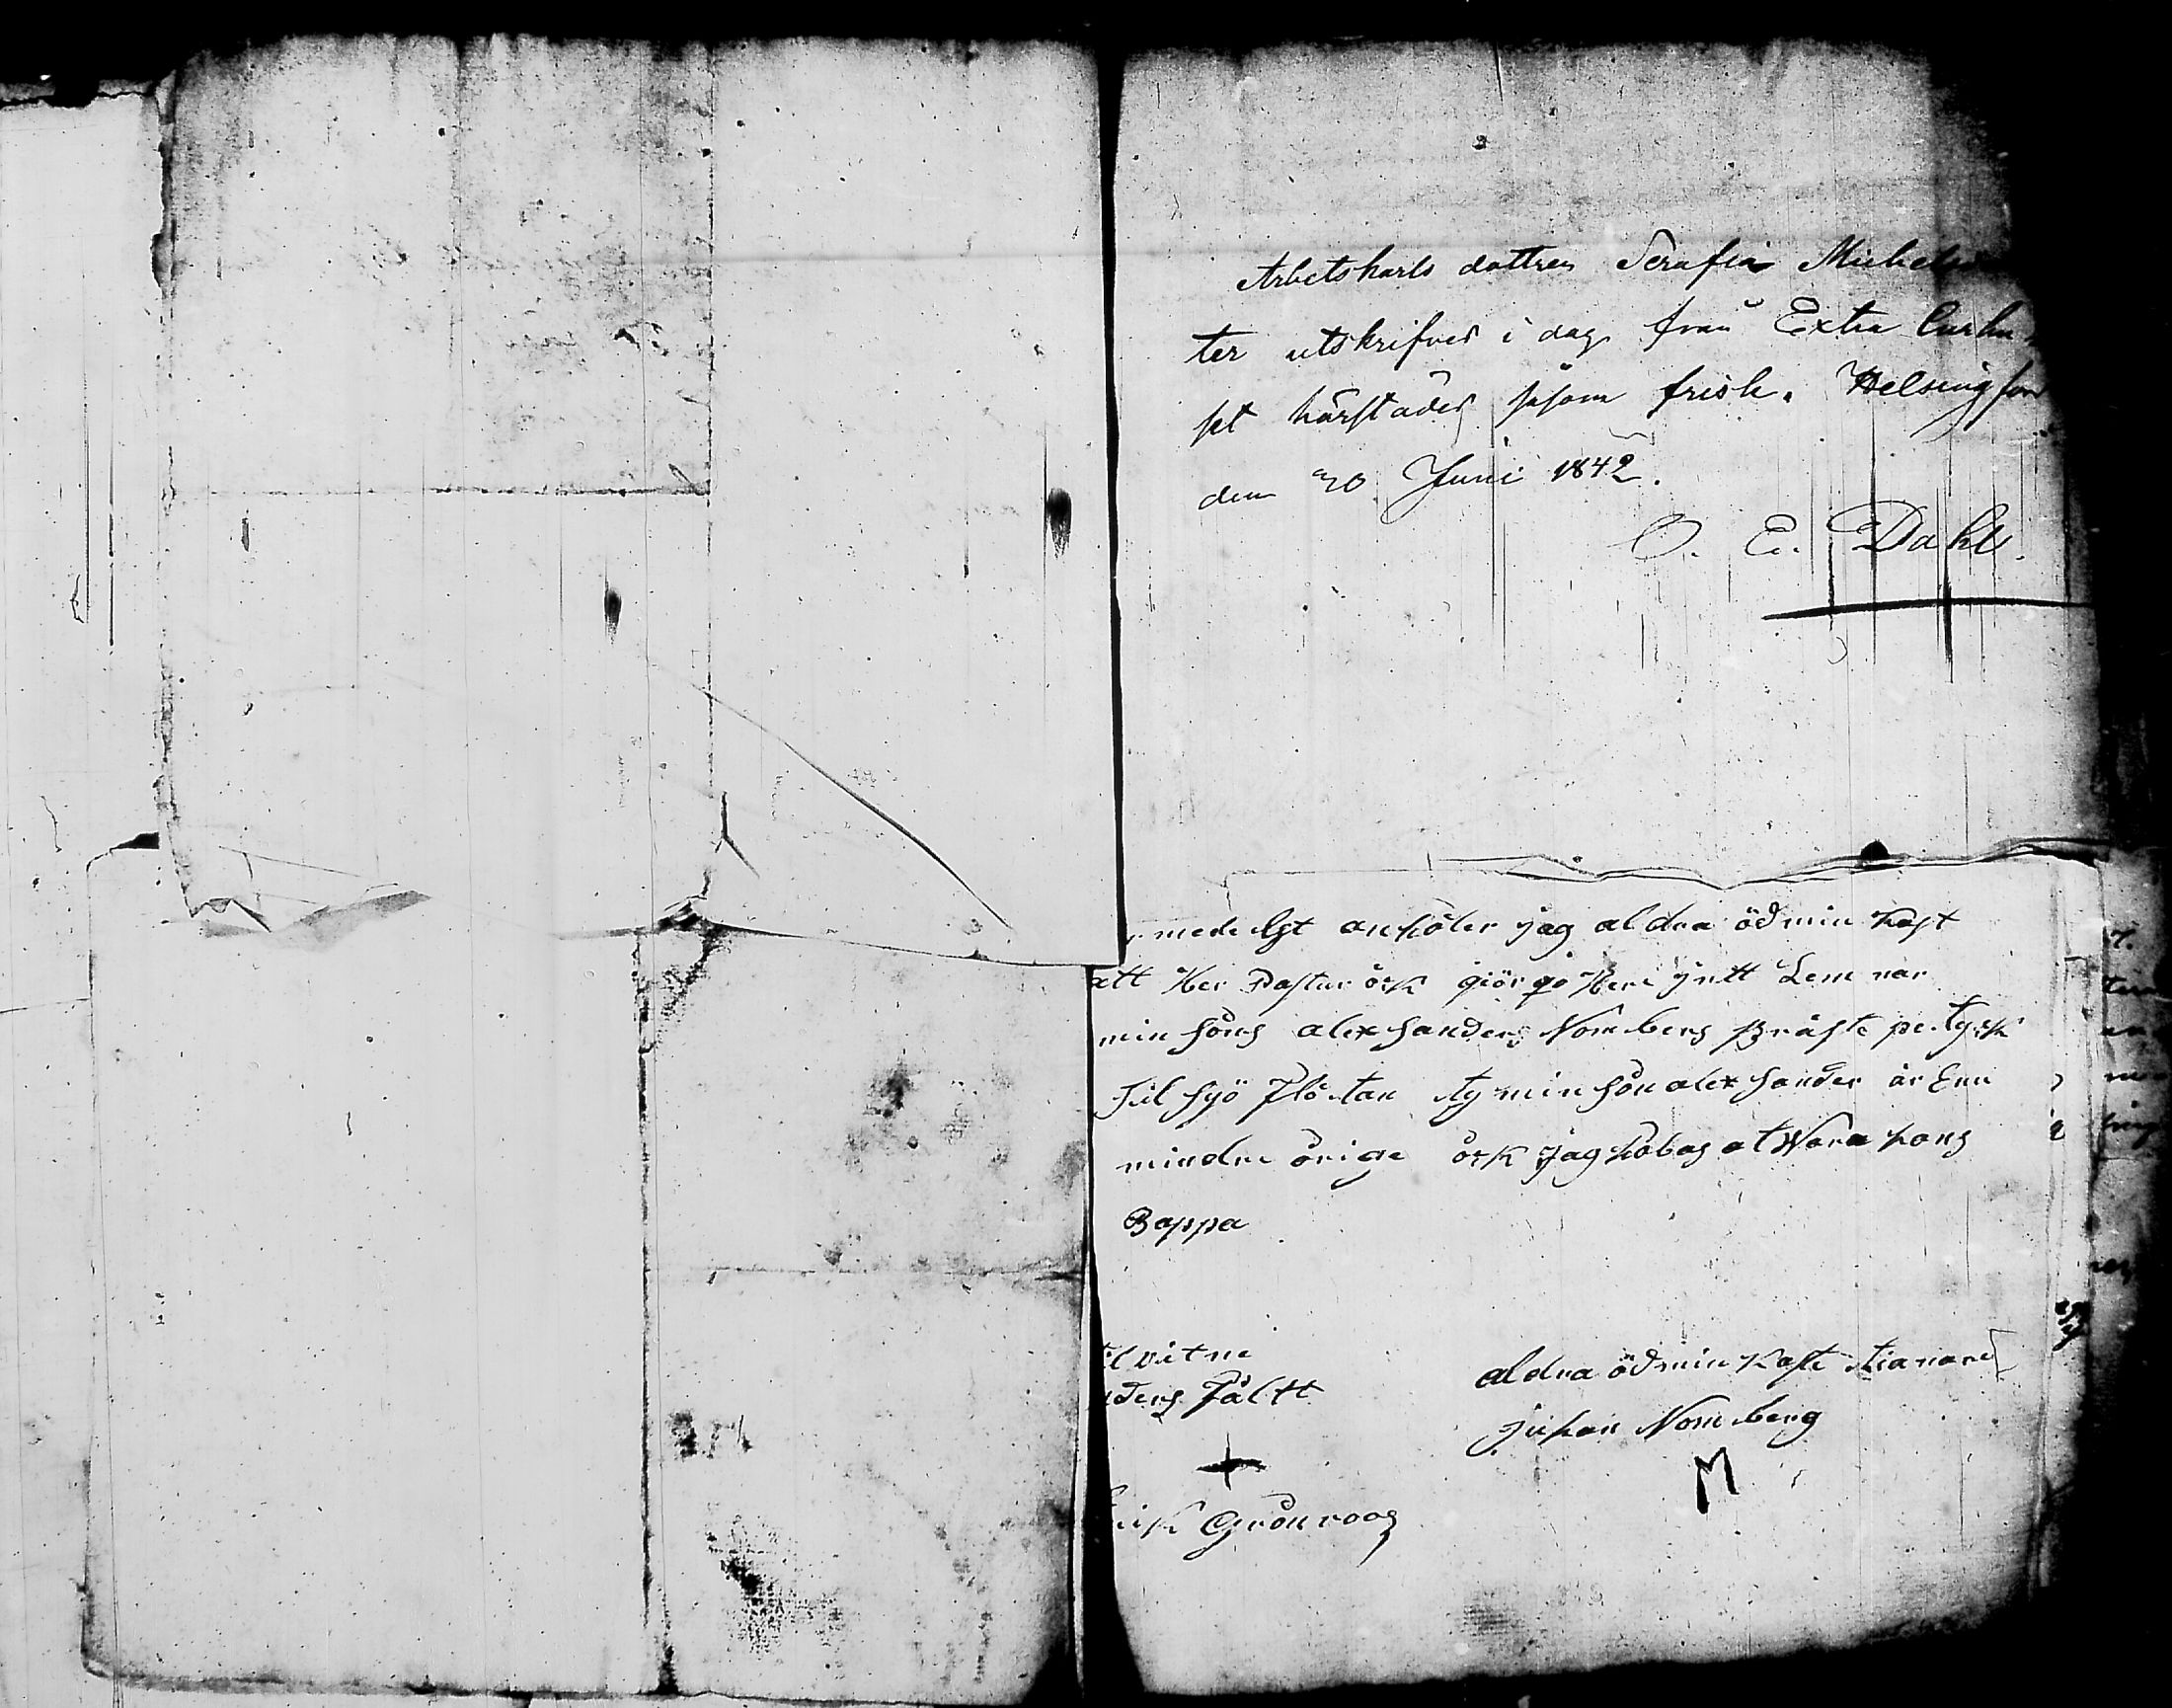 Arbetskarls dottren Serafia Michels
ter utskrifves i dag från Extra Curhu
set härstädes såsom frisk. Helsingfors
den 20 Juni 1842.
O. E. Dahl.
medelst anhöler jag aldra ödmin kast
att Her Pastur ock giör go Here jutt Lem nar
min söns alexsanders Nornberg Präste pe. tysk
Til sjö Flôttan ty min sön alexsander är Enn
mindre örige ock jag håbas at Wara hans
Bappa
til vitne
nders Fältt
+
rik Grönroos
aldra ödmin kaste tianare
Juhan Nornberg
M